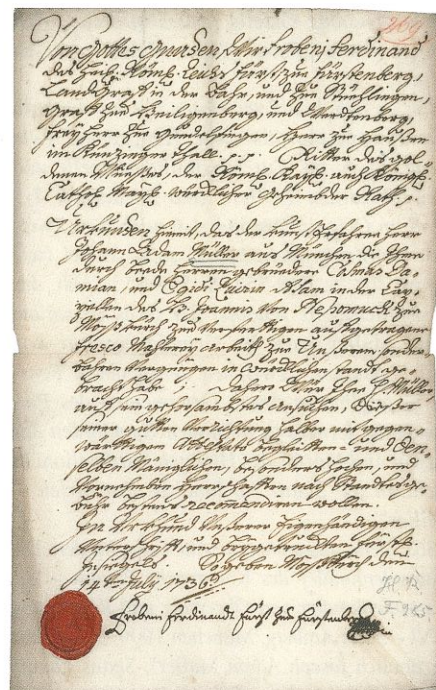 269
Von Gottes gnaden Wir Frobeni Ferdinand
des Heil: Röm: Reichs Fürst zu Fürstenberg,
LandGraff in der Bahr, und zu Stühlingen,
Graff zu Heiligenberg, und Werdenberg,
Freyherr zu Gundelfingen, Herr zu Haußen
im Künzinger Thall. p.p. Ritter des gol-
denen der Röm: Kays: auch Königl:
Cathol: Mayt: würcklicher Geheimbder Rath. p.
Urkunden hiemit, daß der Herr
Johann Adam Müller aus München die Ihme
durch beede Herren gebrüdere Cosmas Da-
mian, und Egidi Quirin Asam in der Cap-
pellen des H: Joannis von Nepomuck zu
Mößkirch zu aufgetragene
fresco Mahlerey Arbeith zu Unserem
Vergnügen in Standt ge-
bracht habe. Dahero Wir Ihme H: Müller
auf sein gehorsambstes ansuchen,
seiner guten halber mit gegen-
wärttigen Attestato und
selben und
Vornehmen Herrschafften nach Standts ge-
bühr bestens recomendiren wollen.
In Urkund Unserer Eigenhändigen
Unterschrifft, und beygetruckten Fürstl:
Insigels. So geben Mößkirch den
14ten July 1736
F. 985
Frobeni Ferdinandt Fürst zu Fürstenberg